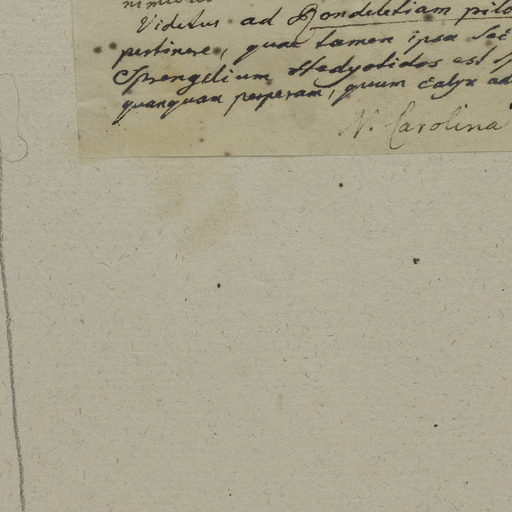 Videtur ad Rondeletiam pilo
pertinere, quae tamen ipsa Sec
Sprengelium Hedyotidos est sp
quanquam perperam, quum calyx ad
N. Carolina